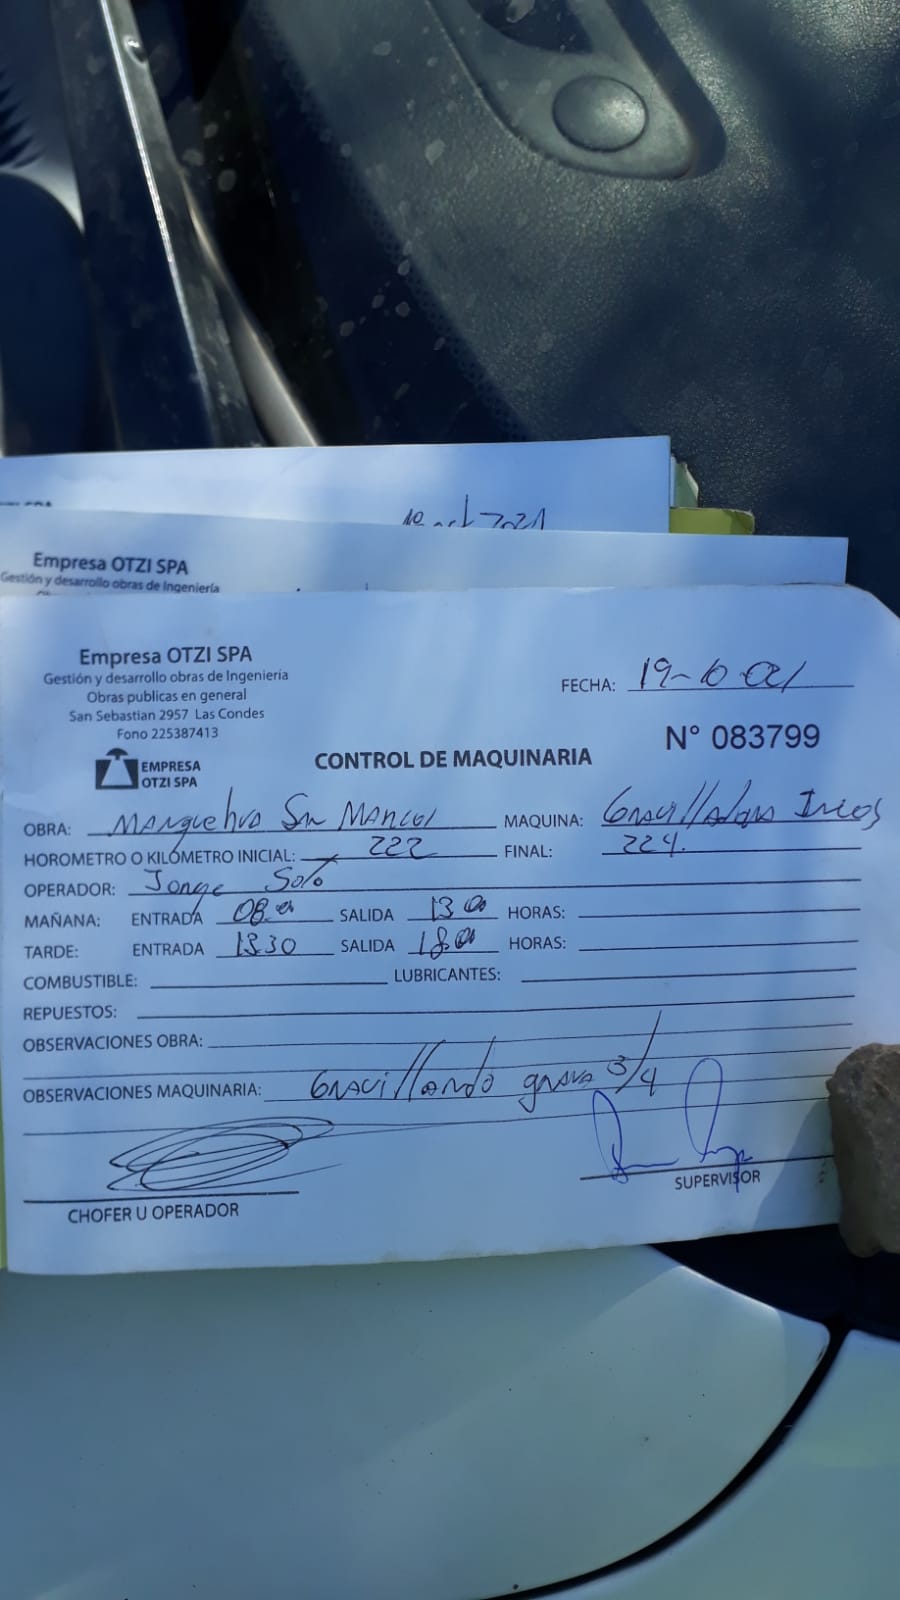 Empresa OTZI SPA
Gestión y desarrollo obras de Ingeniería
Empresa OTZI SPA
Gestión y desarrollo obras de Ingeniería
Obras publicas en general
San Sebastian 2957 Las Condes
Fono 225387413
EMPRESA
OTZI SPA
FECHA: 19-10
N° 083799
CONTROL DE MAQUINARIA
OBRA: Manquehue San Marcos MAQUINA:
HOROMETRO O KILÓMETRO INICIAL: 222 FINAL: 224.
OPERADOR: Jorge Soto
MAÑANA: ENTRADA 08.00 SALIDA 13 00 HORAS:
TARDE: ENTRADA 13.30 SALIDA 18.00 HORAS:
COMBUSTIBLE: LUBRICANTES:
REPUESTOS:
OBSERVACIONES OBRA:
OBSERVACIONES MAQUINARIA: Gravillando grava 3/4
CHOFER U OPERADOR
SUPERVISOR